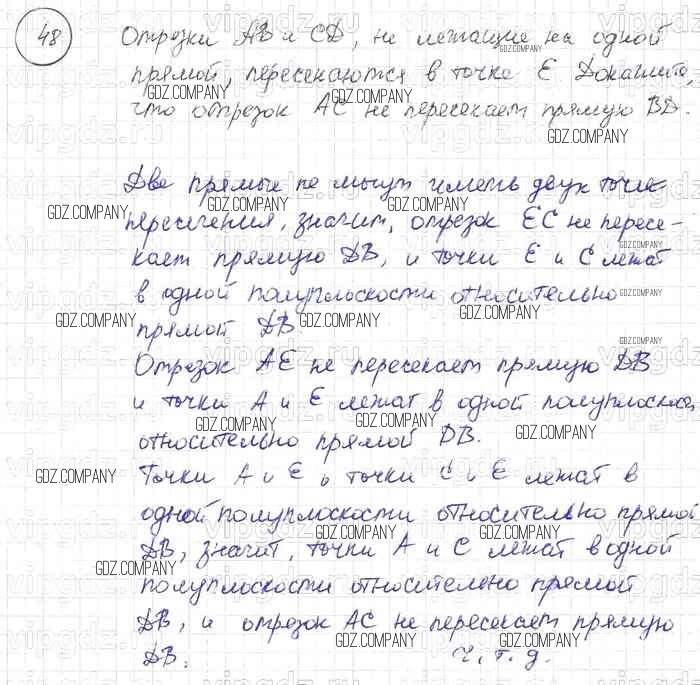 48 Отрезки AB и CD, не лежащие на одной
прямой, пересекаются в точке E. Докажите,
что отрезок AC не пересекает прямую BD.
Две прямые не могут иметь двух точек
пересечения, значит, отрезок EC не пересе-
кает прямую DB, и точки E и C лежат
в одной полуплоскости относительно
прямой DB.
Отрезок AE не пересекает прямую DB
и точки A и E лежат в одной полуплоскости
относительно прямой DB.
Точки A и E, и точки C и E лежат в
одной полуплоскости относительно прямой
DB, значит, точки A и C лежат в одной
полуплоскости относительно прямой
DB, и отрезок AC не пересекает прямую
DB. ч.т.д.
GDZ.COMPANY
vipgdz.ru